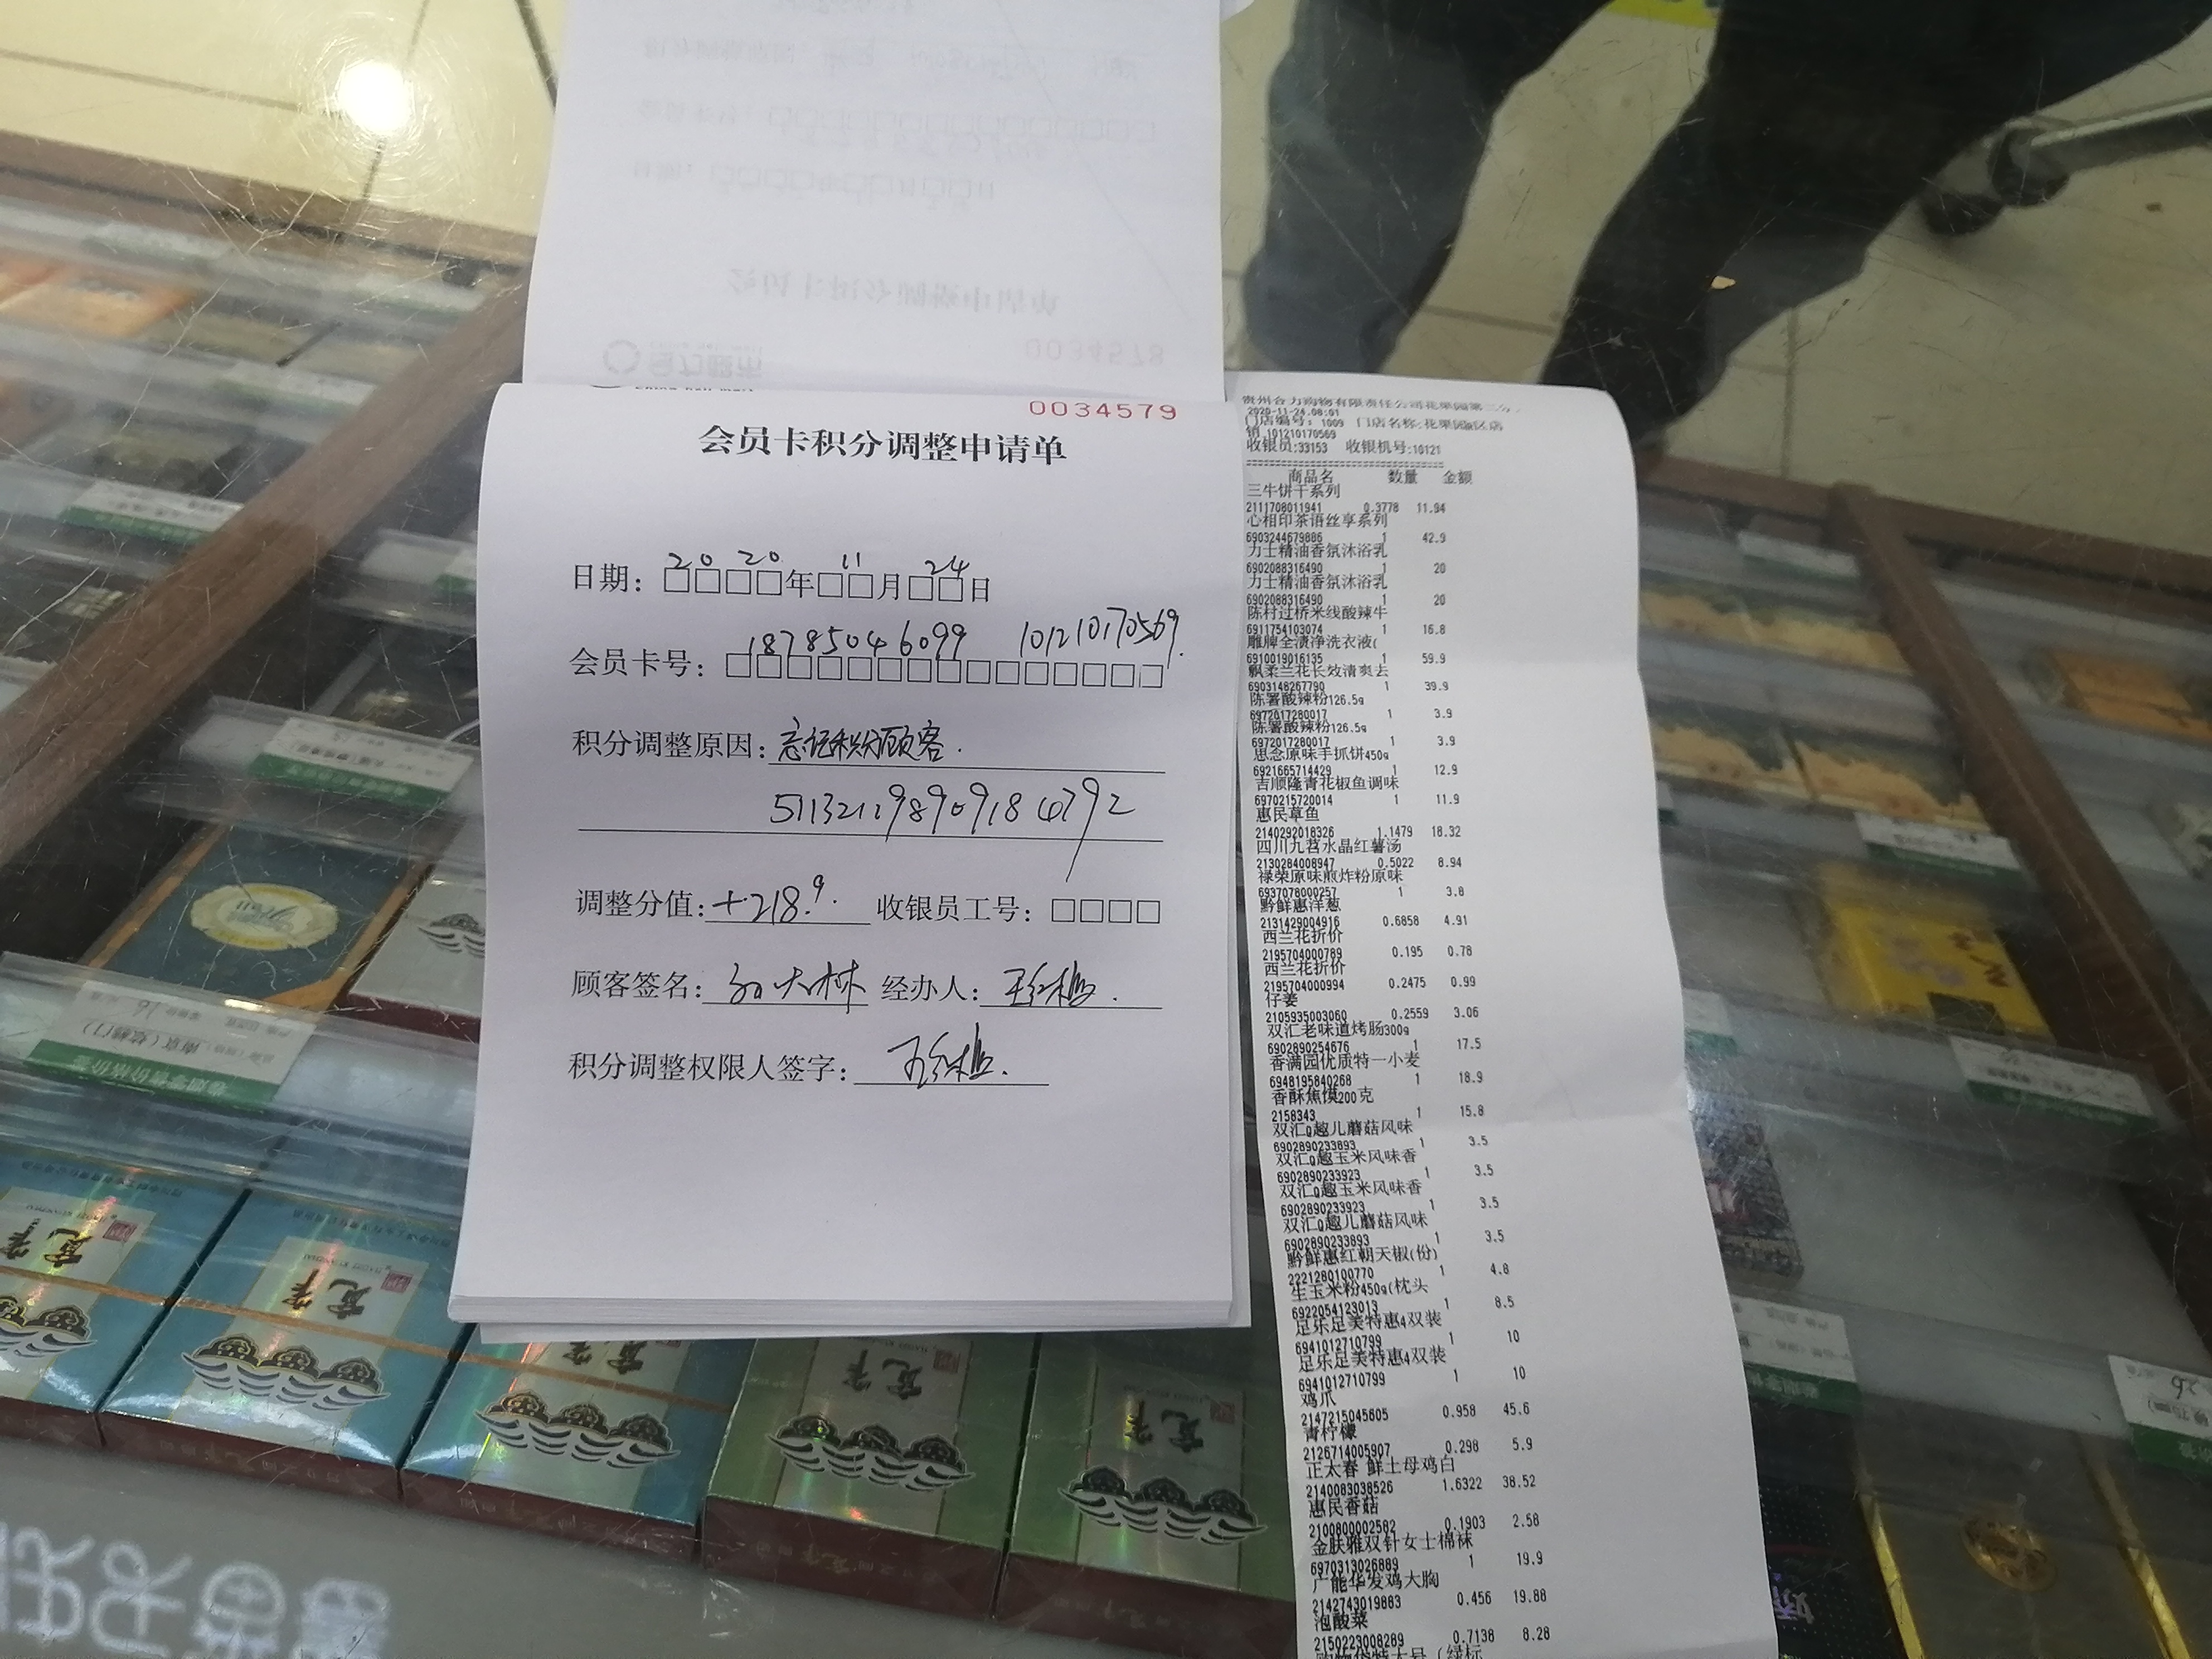 0034578
0034579
会员卡积分调整申请单
日期：2020年11月24日
会员卡号：18785046099 101210170569.
积分调整原因：忘记积分顾客.
调整分值：+218.9. 收银员工号：□□□□
顾客签名： 经办人：
积分调整权限人签字：
贵州合力购物有限责任公司花果园第二分
2020-11-24.08:01
门店编号：1009 门店名称:花果园区店
销 101210170569
收银员:33153 收银机号:10121
商品名 数量 金额
三牛饼干系列
2111708011941 0.3778 11.94
心相印茶语丝享系列
6903244679886 1 42.9
力士精油香氛沐浴乳
6902088316490 1 20
力士精油香氛沐浴乳
6902088316490 1 20
陈村过桥米线酸辣牛
6911754103074 1 16.8
雕牌全渍净洗衣液(
6910019016135 1 59.9
飘柔兰花长效清爽去
6903148267790 1 39.9
陈署酸辣粉126.5g
6972017280017 1 3.9
陈署酸辣粉126.5g
6972017280017 1 3.9
思念原味手抓饼450g
6921665714429 1 12.9
吉顺隆青花椒鱼调味
6970215720014 1 11.9
惠民草鱼
2140292018326 1.1479 18.32
四川九苕水晶红薯汤
2130284008947 0.5022 8.94
禄荣原味煎炸粉原味
6937078000257 1 3.8
黔鲜惠洋葱
2131429004916 0.6858 4.91
西兰花折价
2195704000789 0.195 0.78
西兰花折价
2195704000994 0.2475 0.99
仔姜
2105935003060 0.2559 3.06
双汇老味道烤肠300g
6902890254676 1 17.5
香满园优质特一小麦
6948195840268 1 18.9
香酥焦馍200克
2158343 1 15.8
双汇Q趣儿蘑菇风味
6902890233893 1 3.5
双汇Q趣玉米风味香
6902890233923 1 3.5
双汇Q趣玉米风味香
6902890233923 1 3.5
双汇Q趣儿蘑菇风味
6902890233893 1 3.5
黔鲜惠红朝天椒(份)
2221280100770 1 4.8
生玉米粉450g(枕头
6922054123013 1 8.5
足乐足美特惠4双装
6941012710799 1 10
足乐足美特惠4双装
6941012710799 1 10
鸡爪
2147215045605 0.958 45.6
青柠檬
2126714005907 0.298 5.9
正太春 鲜土母鸡白
2140083038526 1.6322 38.52
惠民香菇
2100800002582 0.1903 2.58
金肤雅双针女士棉袜
6970313026889 1 19.9
广能华发鸡大胸
2142743019883 0.456 19.88
泡酸菜
2150223008289 0.7138 8.28